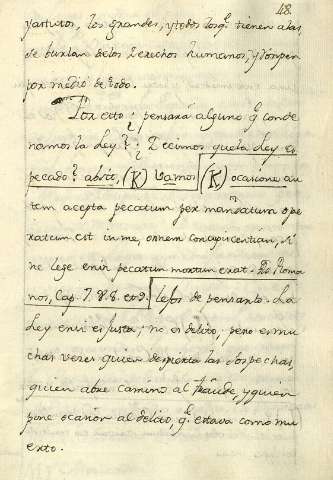 118.
y astutos, los grandes, y todos los q.e tienen alas
se burlan delos derechos humanos, y rompen
por medio de todo.
Por esto ¿pensará alguno q.e conde
namos la Ley? ¿Decimos que la Ley es
pecado? absit, (K) Vamos (K) ocasione au
tem accepta pecatum per mandatum ope
ratum est in me, omnem concupicentiam, Si
ne lege enim pecatum mortuum erat. D. Roma
nos, Cap. 7. 8. 8. et 9. lejos de pensarlo. La
Ley en si es justa; no es delito; pero es mu
chas veces quien despierta las sospechas,
quien abre camino al fraude, y quien
pone ocasion al delito, q.e estava como mu
erto.